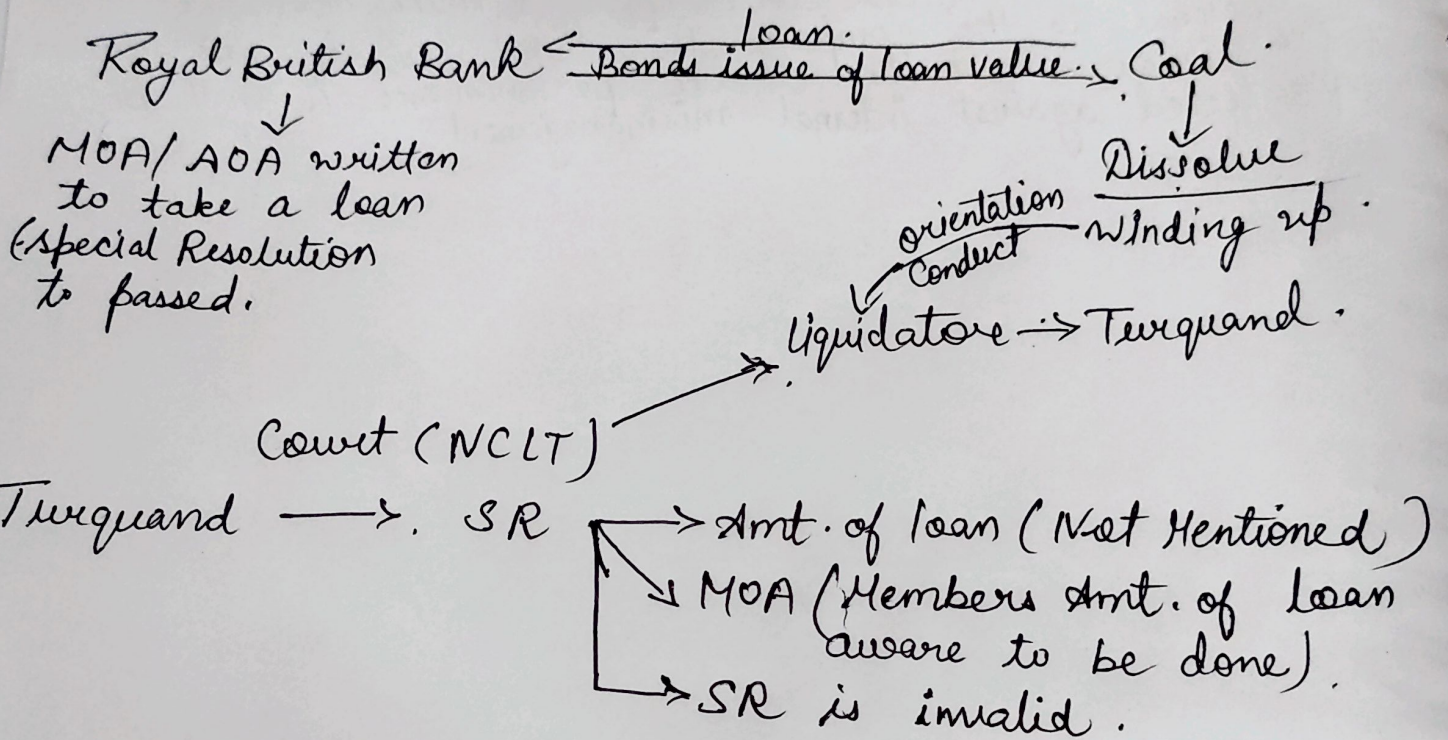 Royal British Bank <- loan. Coal.
Bonds issue of loan value. ->
↓
MOA/AOA written
to take a loan
(special Resolution
to passed.
↓
Dissolve
winding up.
orientation
Conduct
liquidatore -> Turquand.
Court (NCLT)
Turquand -> . SR -> Amt. of loan (Not Mentioned)
MOA (Members Amt. of loan
aware to be done).
-> SR is invalid.